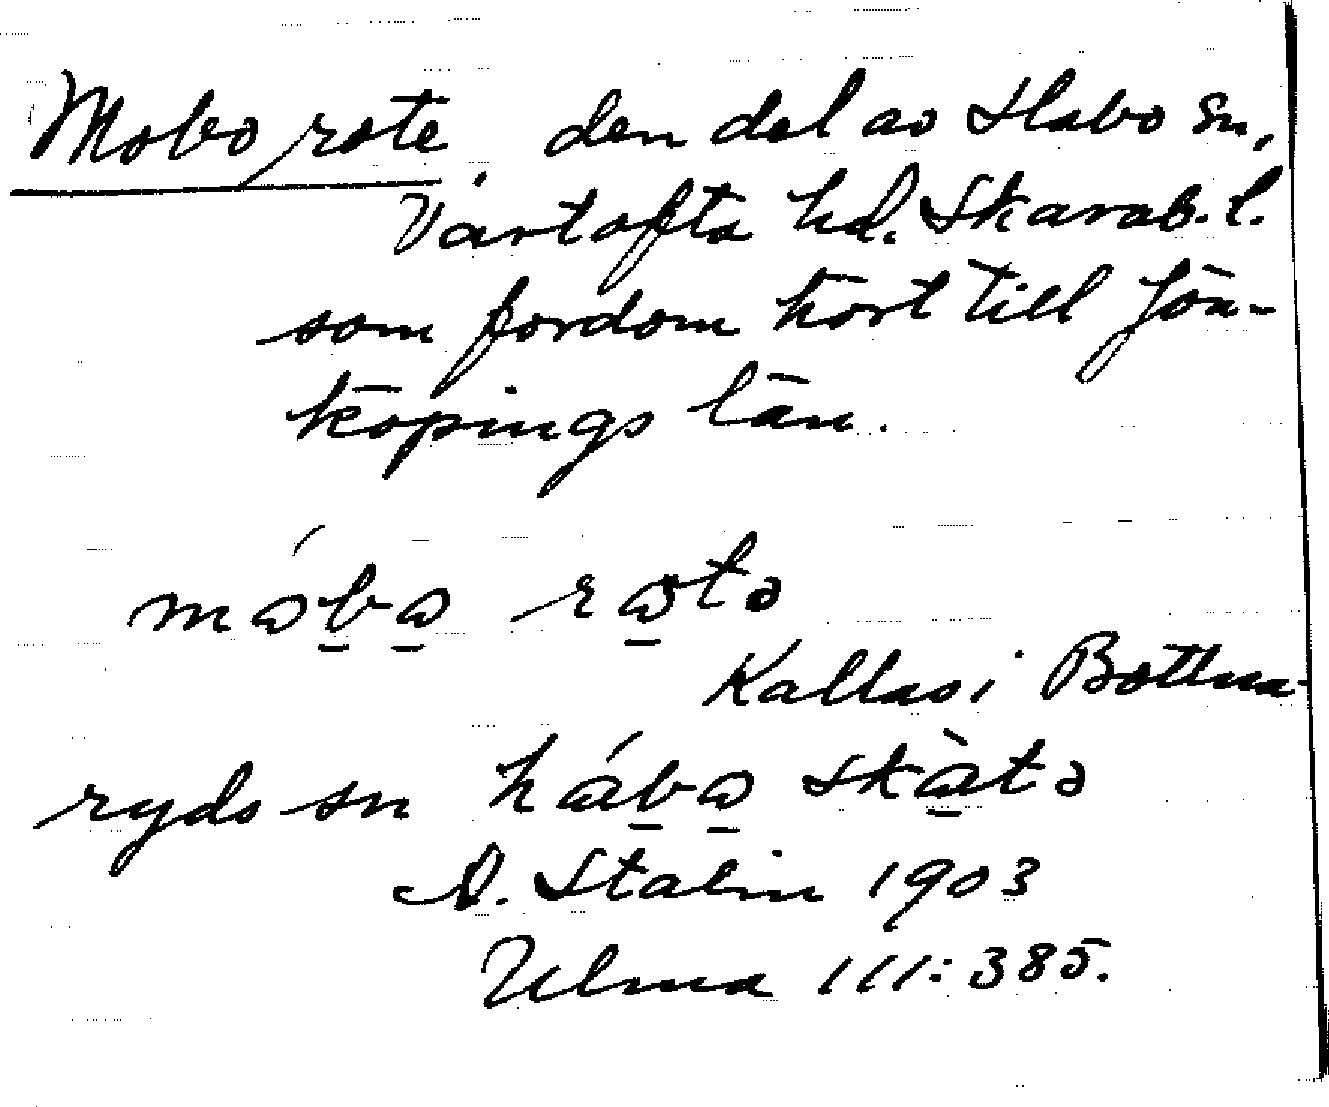 Mobo rote, den del av Habo sn,
Vartofta hd. Skarab. l.
som fordom hört till Jön-
köpings län.
móbo rotə
Kallas i Bottna-
ryds sn hábo skàtə
A. Stalin 1903
Ulma 111:385.